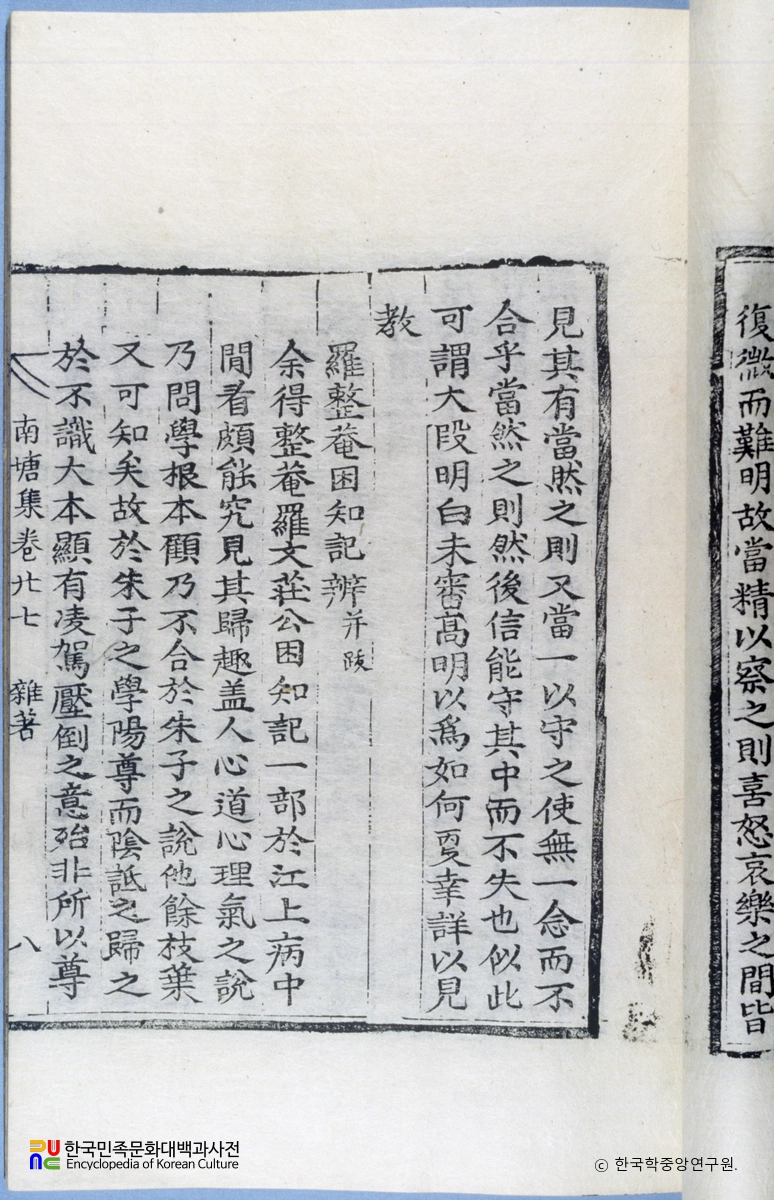 復微而難明故當精以察之則喜怒哀樂之間皆
見其有當然之則又當一以守之使無一念而不
合乎當然之則然後信能守其中而不失也似此
可謂大段明白未審高明以爲如何更幸詳以見
教
羅整菴困知記辨并跋
余得整菴羅文莊公困知記一部於江上病中
閒看頗能究見其歸趣盖人心道心理氣之說
乃問學根本顧乃不合於朱子之說他餘枝葉
又可知矣故於朱子之學陽尊而陰詆之歸之
於不識大本顯有凌駕壓倒之意殆非所以尊
南塘集卷廿七 雜著 八
한국민족문화대백과사전
Encyclopedia of Korean Culture
© 한국학중앙연구원.